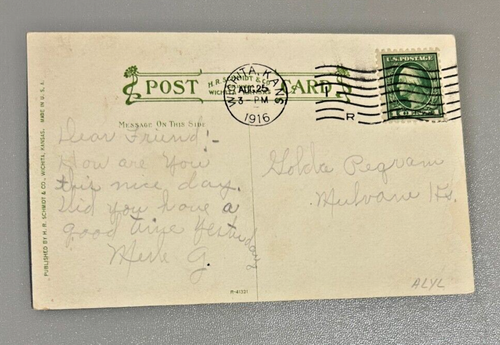 POST CARD
H. R. SCHMIDT & CO
WICHITA
WICHITA, KANS
AUG 25
3 - PM
1916
R
U.S. POSTAGE
MESSAGE ON THIS SIDE
Dear Friend:-
How are you
this nice day.
Did you have a
good time Yesterday
Merle G.
Golda Pegram
Mulvane Ks.
PUBLISHED BY H. R. SCHMIDT & CO., WICHITA, KANSAS. MADE IN U. S. A.
ALYL